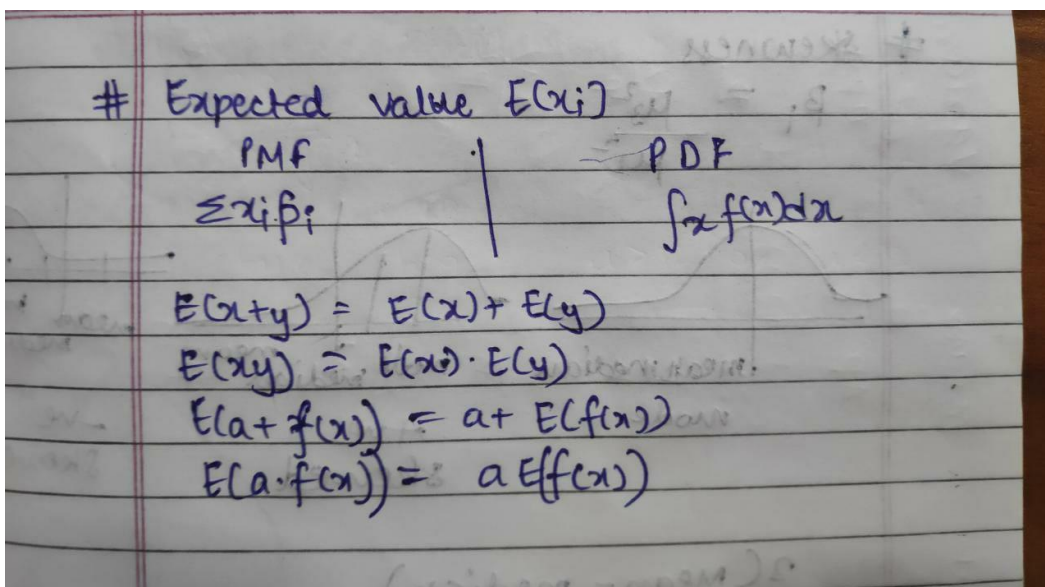 # Expected value E(xi]
PMF | PDF
Σxipi | ∫x f(x)dx
E(x+y) = E(x) + E(y)
E(xy) = E(x) · E(y)
E(a + f(x)) = a + E(f(x))
E(a·f(x)) = a E(f(x))